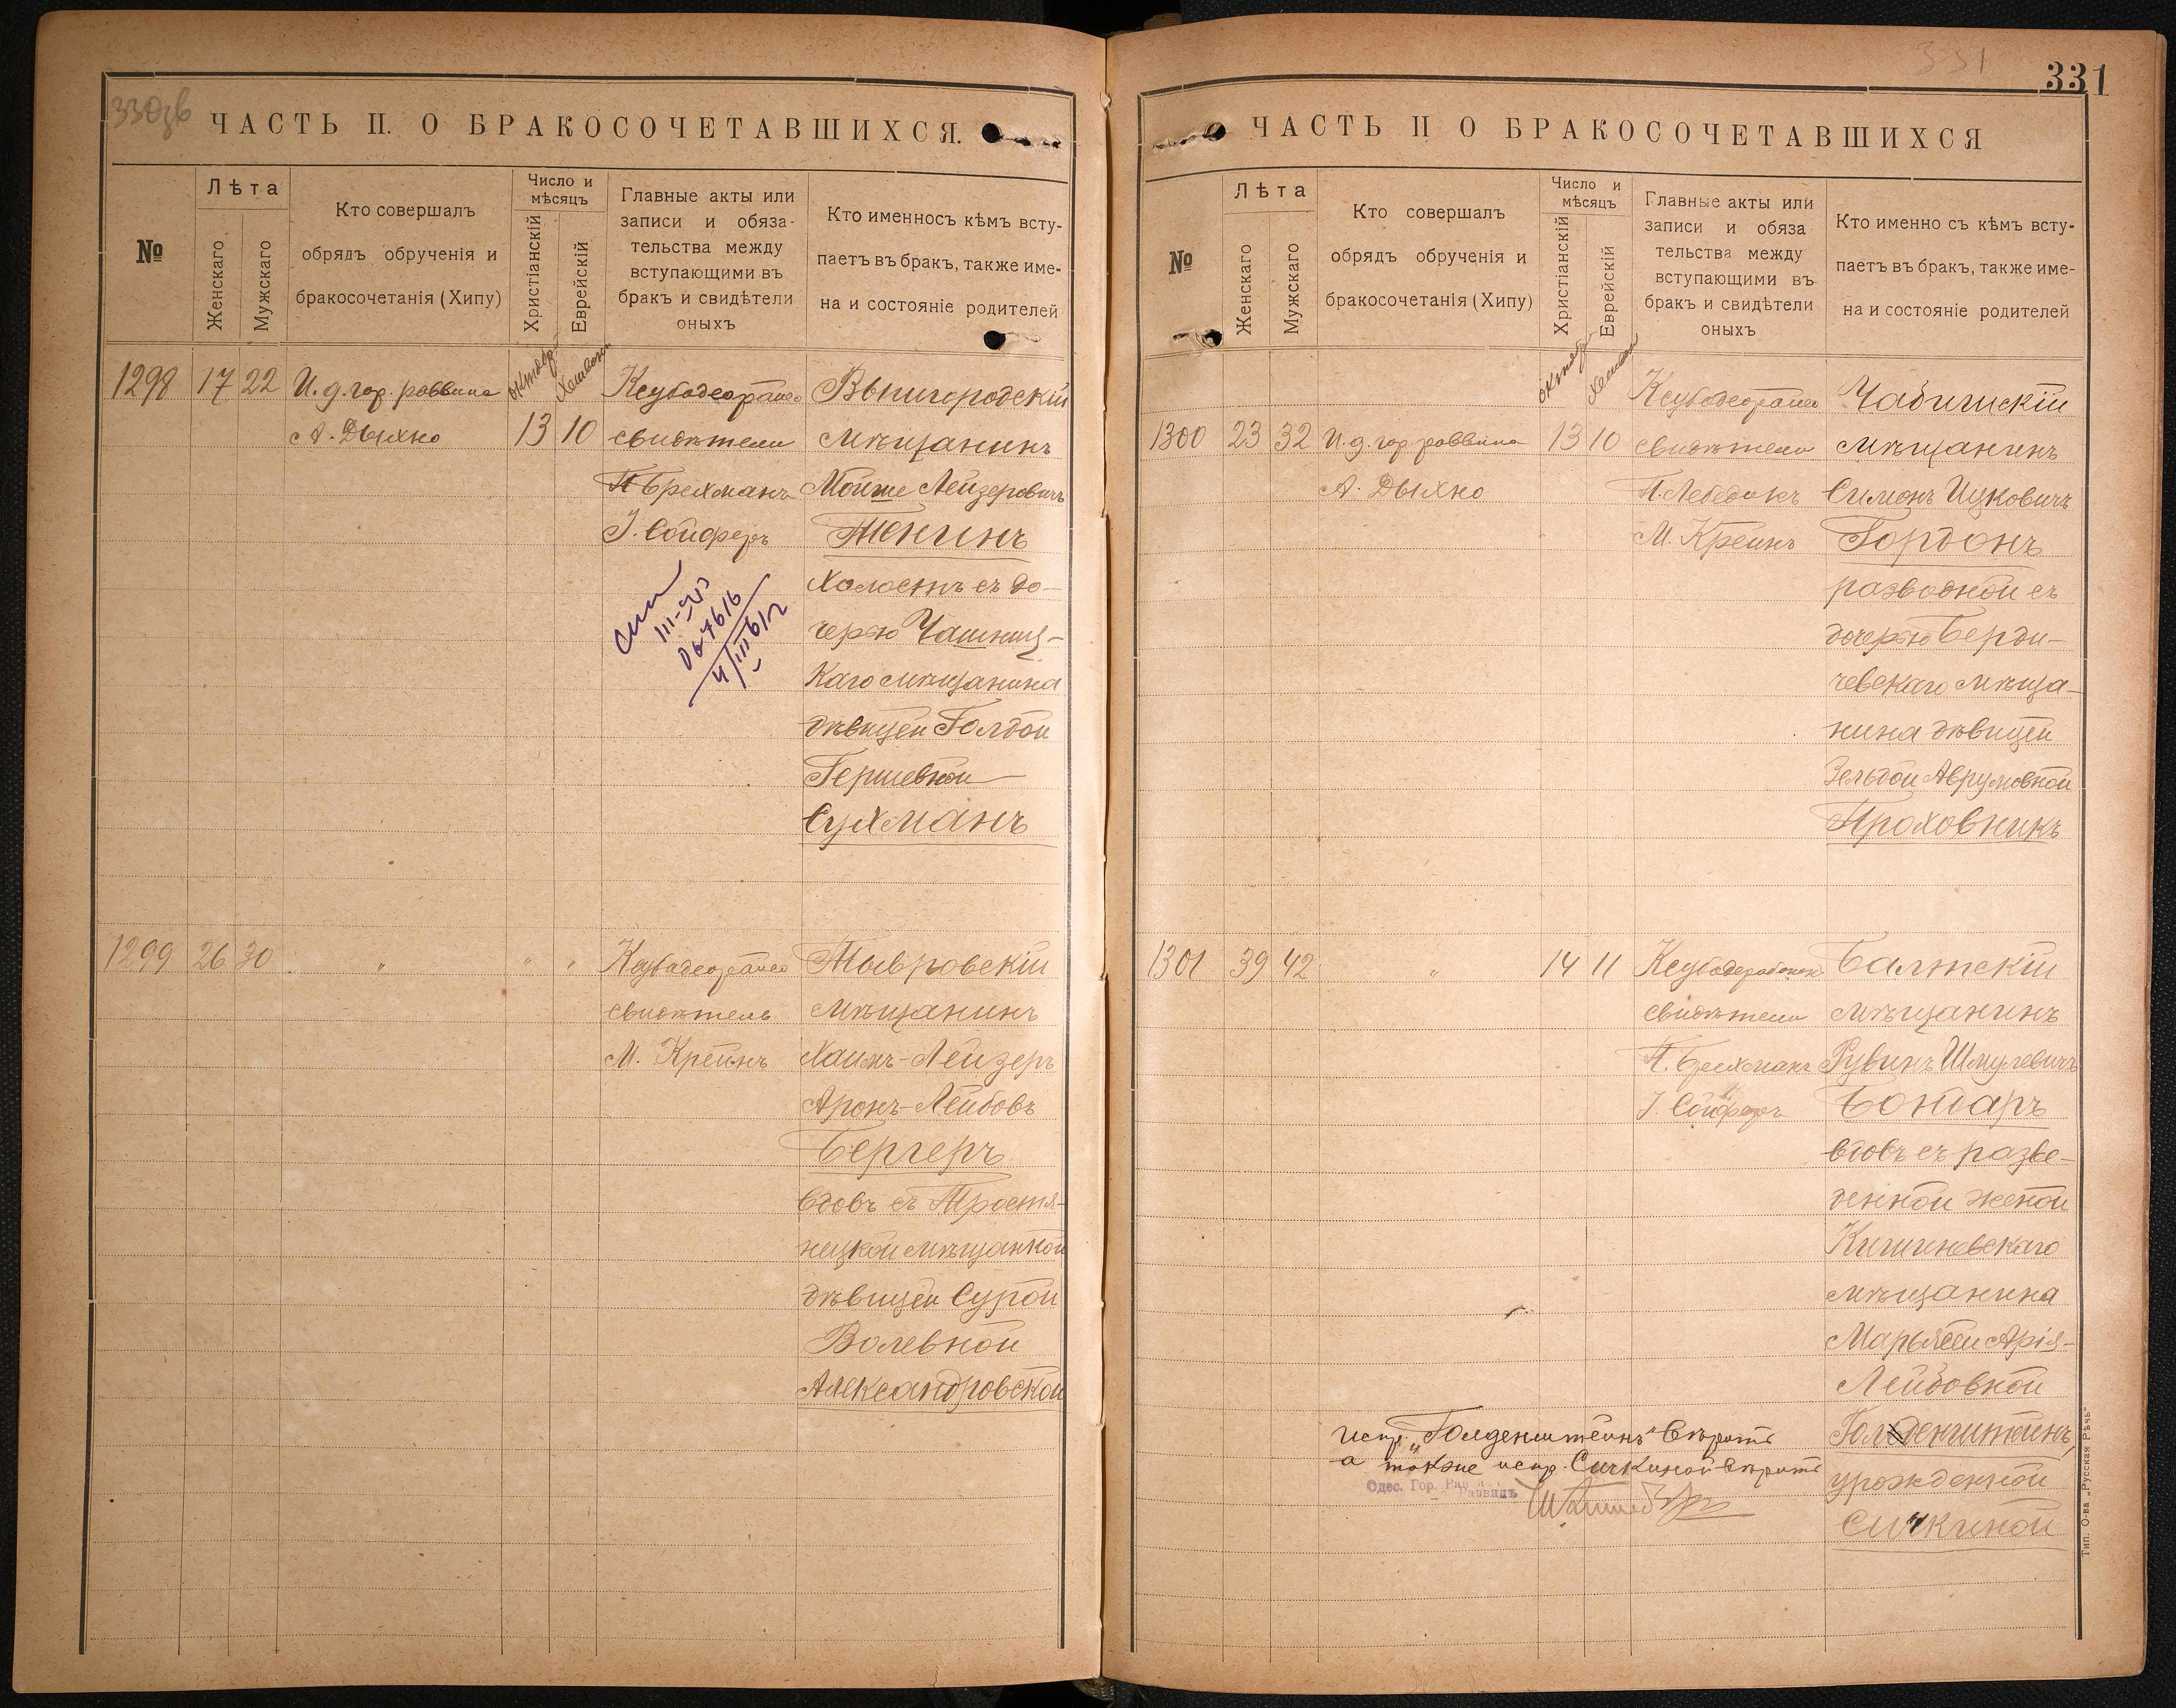 330 зв
ЧАСТЬ II. О БРАКОСОЧЕТАВШИХСЯ.
№
Лѣта
Женскаго
Мужскаго
Кто совершалъ
обрядъ обрученія и
бракосочетанія (Хипу)
Число и
мѣсяцъ
Христіанскій
Еврейскій
Главные акты или
записи и обяза-
тельства между
вступающими въ
бракъ и свидѣтели
оныхъ
Кто именносъ кѣмъ всту-
паетъ въ бракъ, также име-
на и состояніе родителей
октябр
Хешвонъ
1298 17 22 И.д. гор. раввина
А. Дыхно
13 10
свидѣтели
П Брехманъ
І. Сойферъ
Вышгородскій
мѣщанинъ
Мойше Лейзеровичъ
Тенинъ
Холостъ съ до-
черью Чашниц-
каго мѣщанина
дѣвицей Голдой
Гершевной
Сухманъ
1299 26 30 " " "
свидѣтель
М. Крейнъ
Тывровскій
мѣщанинъ
Хаимъ-Лейзеръ
Аронъ-Лейбовъ
Бергеръ
вдовъ съ Тростя-
нецкой мѣщанкой
дѣвицей Сурой
Волевной
Александровской
331
331
ЧАСТЬ II О БРАКОСОЧЕТАВШИХСЯ
№
Лѣта
Женскаго
Мужскаго
Кто совершалъ
обрядъ обрученія и
бракосочетанія (Хипу)
Число и
мѣсяцъ
Христіанскій
Еврейскій
Главные акты или
записи и обяза
тельства между
вступающими въ
бракъ и свидѣтели
оныхъ
Кто именно съ кѣмъ всту-
паетъ въ бракъ, также име-
на и состояніе родителей
1300 23 32 И.д. гор раввина
А. Дыхно
13 10
свидѣтели
П. Лебедикъ
М. Крейнъ
мѣщанинъ
Симонъ Ицковичъ
Гордонъ
разводной съ
дочерью Берди-
чевскаго мѣща-
нина дѣвицей
Зельдой Аврумовной
Проховникъ
1301 39 42 " 14 11
свидѣтели
П. Брехманъ
І. Сойферъ
Балтскій
мѣщанинъ
Рувинъ Шмулевичъ
Бондаръ
вдовъ съ разве-
денной женой
Кишиневскаго
мѣщанина
Марьясей Арія-
Лейбовной
Голденштейнъ,
урожденной
Сичкиной
испр. „Голденштейнъ" вѣрить
а также испр. Сичкиной вѣрить
Одес. Гор. Раввинъ
Тип. О-ва „Русская Рѣчь"